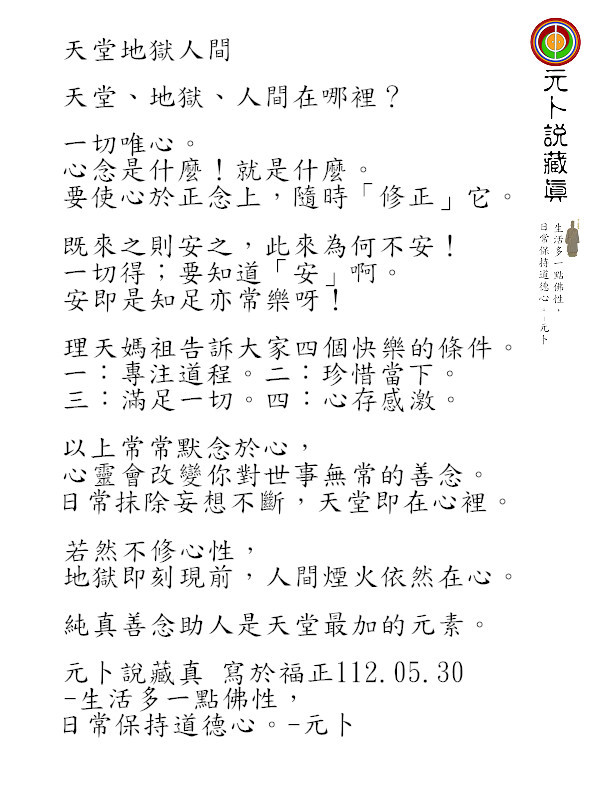 天堂地獄人間
天堂、地獄、人間在哪裡？
一切唯心。
心念是什麼！就是什麼。
要使心於正念上，隨時「修正」它。
既來之則安之，此來為何不安！
一切得；要知道「安」啊。
安即是知足亦常樂呀！
理天媽祖告訴大家四個快樂的條件。
一：專注道程。二：珍惜當下。
三：滿足一切。四：心存感激。
以上常常默念於心，
心靈會改變你對世事無常的善念。
日常抹除妄想不斷，天堂即在心裡。
若然不修心性，
地獄即刻現前，人間煙火依然在心。
純真善念助人是天堂最加的元素。
元卜說藏真 寫於福正112.05.30
-生活多一點佛性，
日常保持道德心。-元卜
元卜說藏真
生活多一點佛性，
日常保持道德心。-元卜